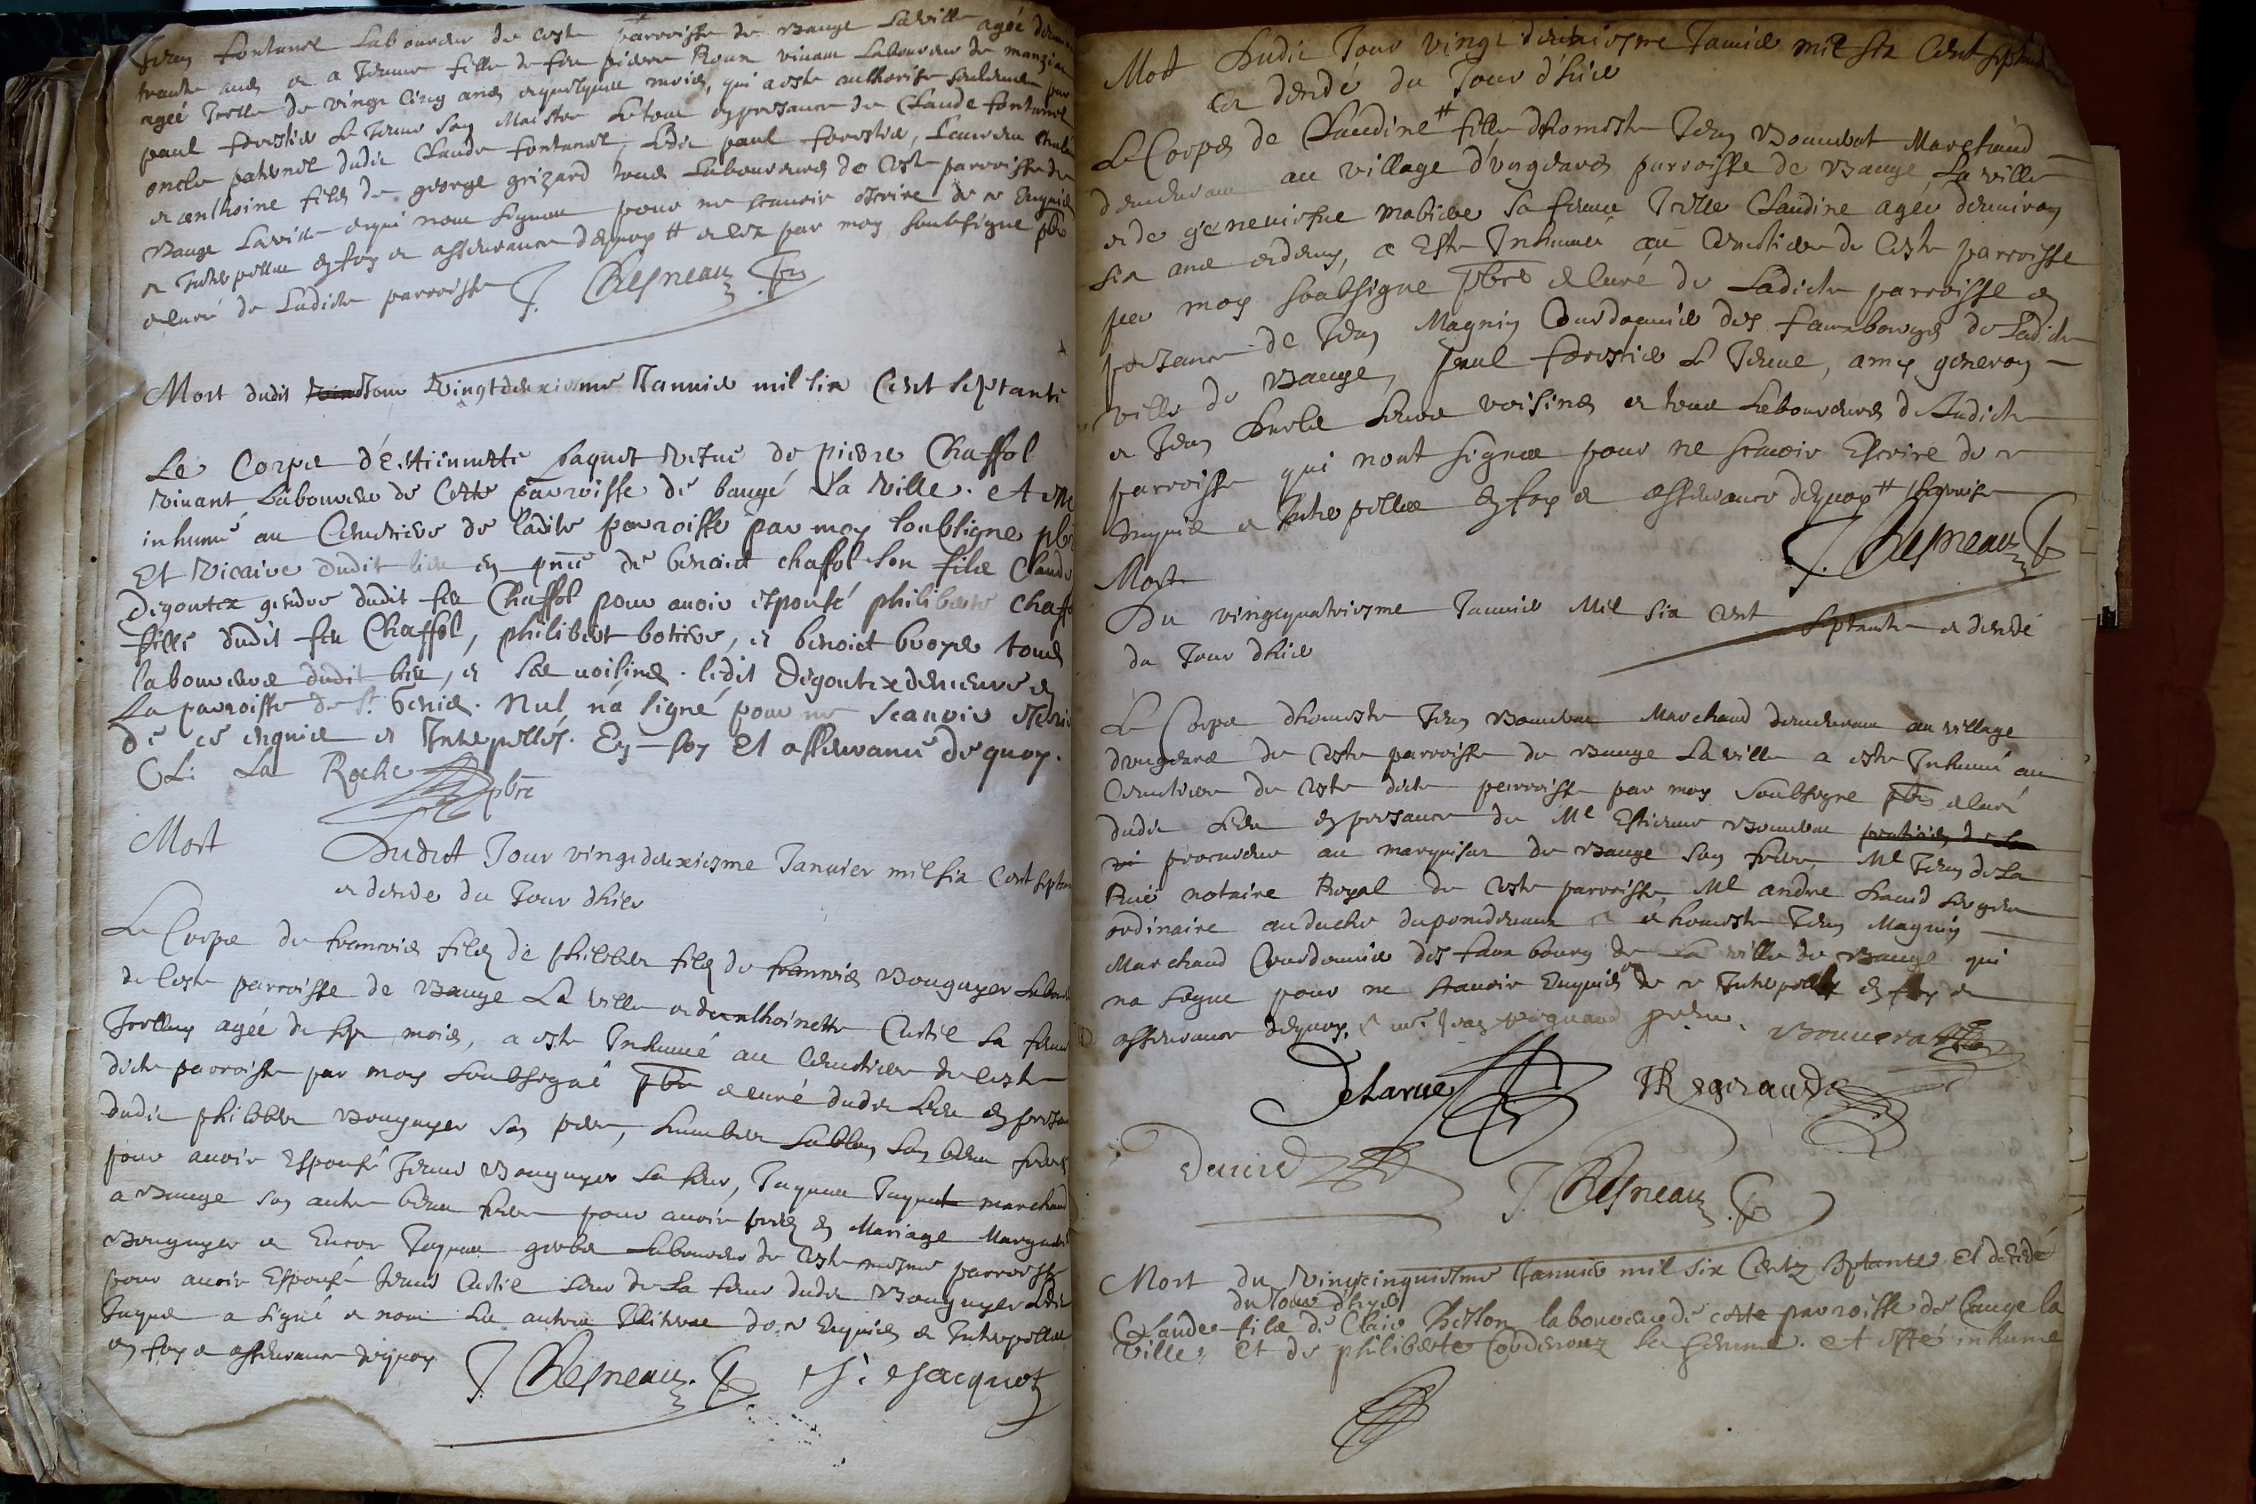 Jean fontanel Laboureur de ceste parroisse de Bauge Laville agéé
trante ans et a Jeanne fille de feu pierre Roux vivant Laboureur de
agéé Icelle de vingt Cinq ans et quelques mois, qui a este authorise
paul forestier Le Jeune son Maistre Le tout en presance de Claude fontanel
oncle paternel dudit Claude fontanel, Ledit paul forestier,
et anthoine fils de george grizard tous Laboureurs de Ceste parroisse de
Bauge Laville et qui nont signéz pour ne scavoir escrire de ce Enquis
et Interpellez en foy et asseurance dequoy # et ect par moy soubsigne pbre
et curé de Ladicte parroisse J. Chesneau pbre
Mort dudit Jour Vingtdeuxiesme Januier mil six Cent septante
Le Corps d'Estiennette Jaquet Vefue de pierre Chaffol
vivant Laboureur de Ceste parroisse de baugé La Ville. et este
inhumé au Cemetiere de Ladite parroisse par moy soubsigne pbre
Et Vicaire dudit lieu en pnce de benoict chaffol son fils Claude
Degoutex gendre dudit feu Chaffol pour avoir espousé philiberte chaffol
fille dudit feu Chaffol, philibert botiere, et benoict broyer tous
laboureurs dudit lieu, et ses voisins. ledit Degoutex demeure en
La parroisse de St. Genis. Nul n'a signé pour ne scavoir escrire
de ce enquis et Interpellés. En foy Et asseurance de quoy.
Cl: La Roche pbre
Mort Dudict Jour vingtdeuxiesme Januier mil six Cent septante
et decede du Jour dhier
Le Corps de francois fils de philibert fils de francois Bouguyer Laboureur
de Ceste parroisse de Bauge La ville et de anthoinette Custil sa femme
Icelluy agéé de sept mois, a este Inhumé au Cemetiere de ceste
dicte parroisse par moy soubsigné pbre et curé dudit Lieu en presance
dudit philibert Bouguyer son pere, humbert Sablon son beau frere
pour avoir Espousé Jeanne Bouguyer sa seur, Jaques Jaquet marchand
a Bauge son autre beau frere pour avoir pris en Mariage Marguerite
Bouguyer et Encor Jaques gorbe Laboureur de Ceste mesme parroisse
pour avoir Espousé Jeanne Custil seur de La femme dudit Bouguyer Ledit
Jaquet a signé et non Les autres Illiteres de ce Enquis et Interpellez
en foy et asseurance dequoy
J. Chesneau. pbre J: Jacquet
Mort Dudit Jour vingt deuxiesme Januier mil six Cent septante
et decedé du Jour d'hier
Le Corps de Claudine # fille dhoneste Jean Bouuerat Marchand
demeurant au village d'ungeares parroisse de Bauge La ville
et de geneviesve Matiere sa femme Icelle Claudine agéé denviron
six ans et demy, a Este Inhumée au Cemetiere de Ceste parroisse
par moy soubsigne pbre et Curé de Ladicte parroisse en
presance de Jean Magnin Courdonnier des fauxbourgs de Ladicte
ville de Bauge, paul forestier Le Jeune, amy generon
et Jean Buelle Leurs voisins et tous Laboureurs de Ladicte
parroisse qui nont signéz pour ne scavoir Escrire de ce
Enquis et Interpellez en foy et asseurance dequoy #
J. Chesneau pbre
Mort
Du vingtquatriesme Januier Mil six Cent septante et decedé
du Jour dhier
Le Corps dhoneste Jean Bouuerat Marchand demeurant au village
dungeares de Ceste parroisse de Bauge Laville a este Inhumé au
Cemetiere de Ceste dicte parroisse par moy soubsigne pbre et Curé
dudit Lieu en presance de Me Estienne Bouuerat
procureur au marquisat de Bauge son frere, Me Jean de La
Rue notaire Royal de Ceste parroisse, Me andre
ordinaire au duche dupondevaux et honeste Jean Magnin
Marchand Courdonnier des faux bourg de La ville de Bauge qui
na signe pour ne scavoir Enquis de ce Interpelle en foy et
asseurance dequoy, et me. Jean pignaud
Bouuerat
Delarue Regnauda
Denis
J. Chesneau. pbre
Mort du Vingtcinquiesme Januier mil six Centz septante Et decedé
du Jour d'hyer
Claude fils de Clair Hillon laboureur de ceste parroisse de Bauge la
Ville, et de philiberte Corderouz sa femme. et esté inhumé